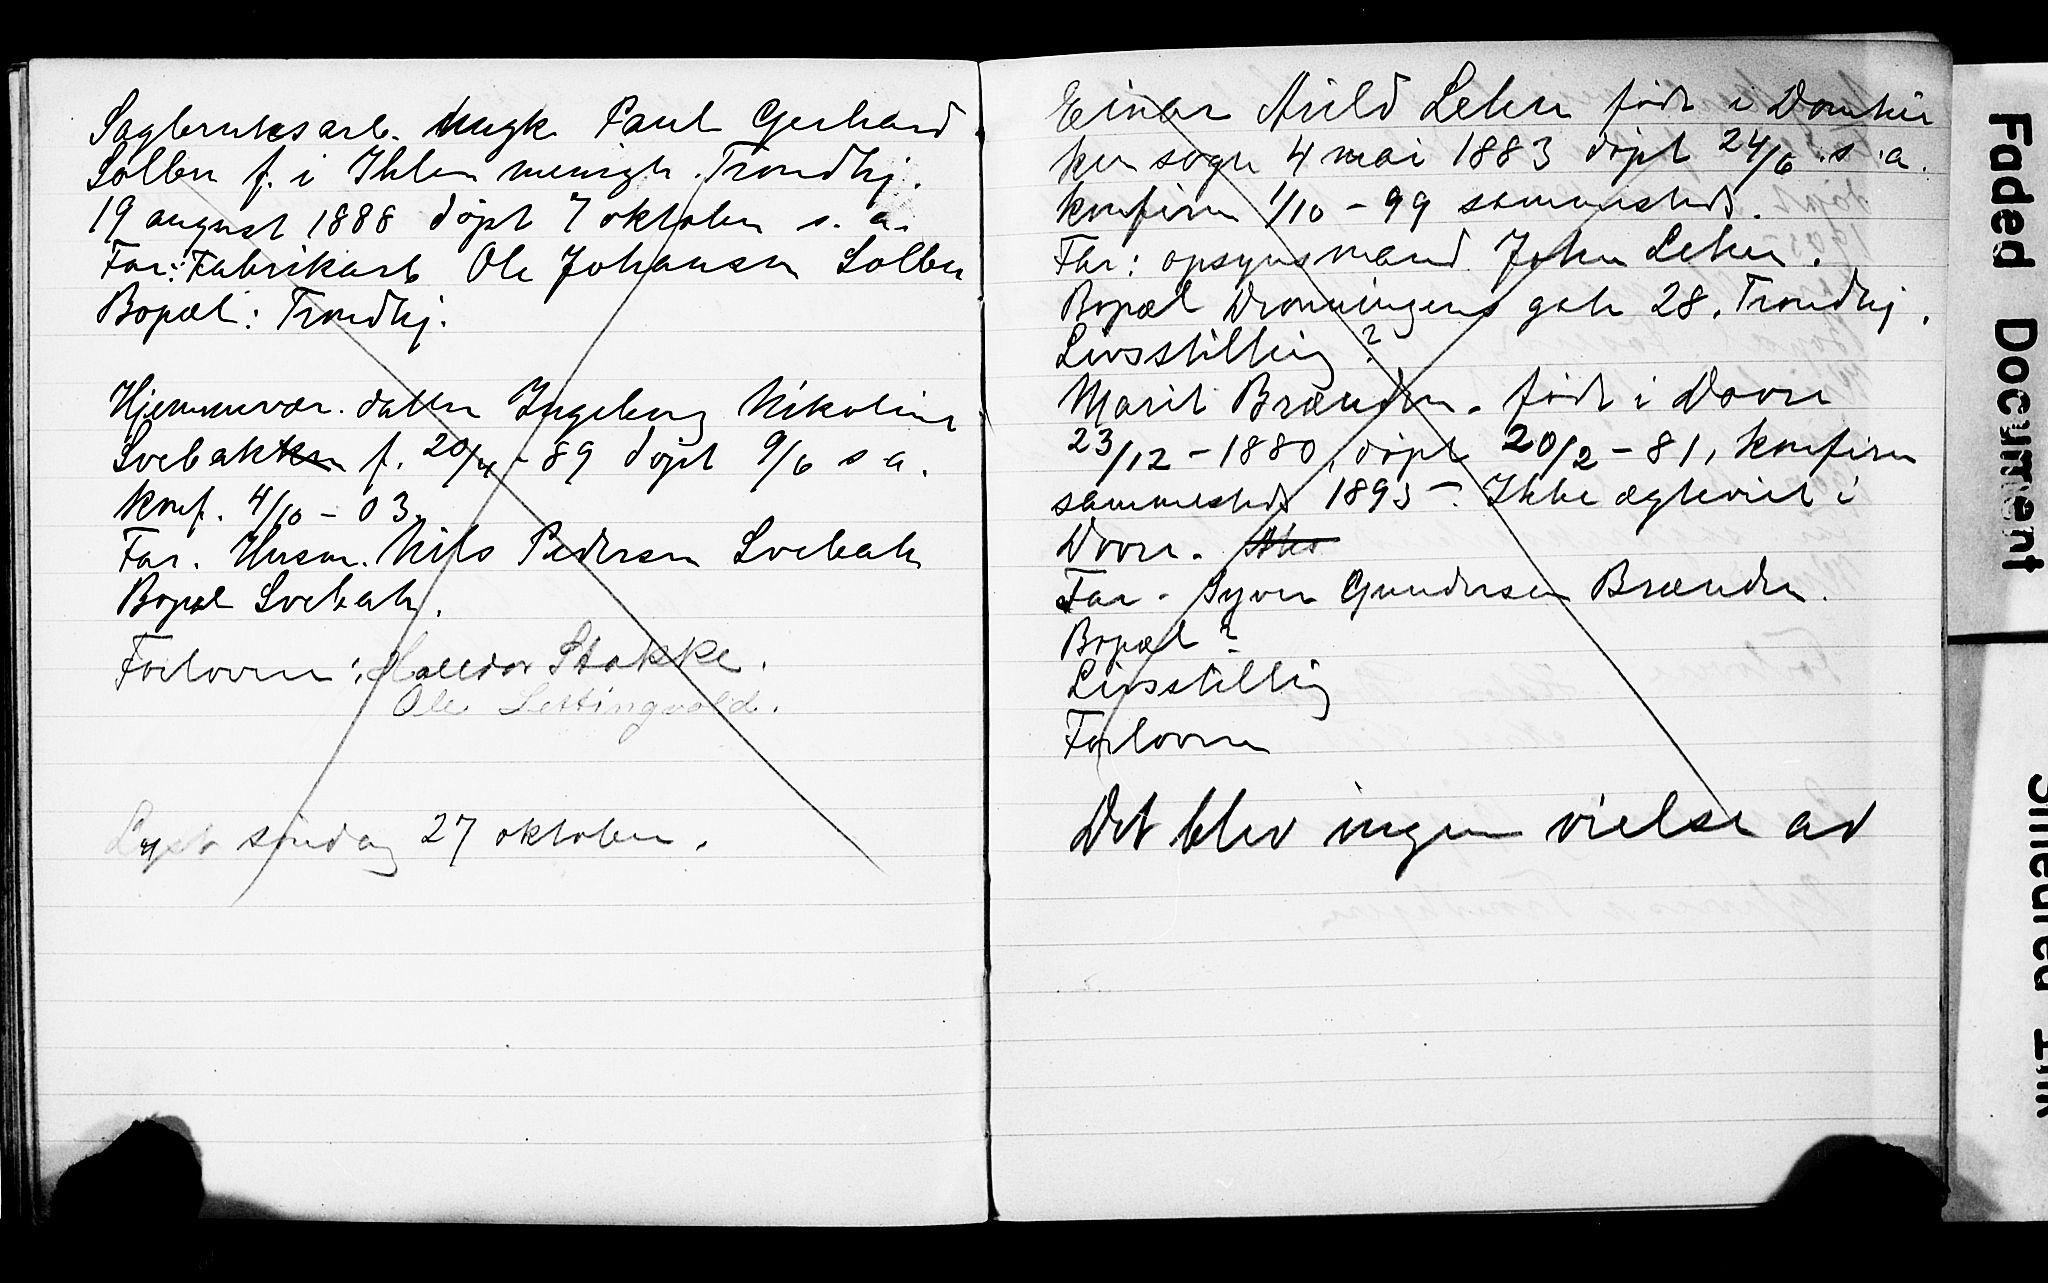 Sagbruksarb. Ungk. Paul Gerhard
Solben f. i Ihlen menigh. Trondhj.
19 august 1888 døpt 7 oktober s. a.
Far: Fabrikarb Ole Johansen Solben
Bopæl: Trondhj.
Hjemmevær. datter Ingeborg Nikoline
Svebakken f. 20/4 - 89 døpt 9/6 s a.
konf. 4/10 - 03.
Far. Husm. Nils Pedersen Svebak
Bopæl Svebak.
Forlovere: Halldor Stokke.
Ole Settingvold.
Lyst søndag 27 oktober.
Einar Arild Lehn født i Domkir
ken sogn 4 mai 1883 døpt 24/6 s. a.
konfirm 1/10 - 99 sammesteds.
Far: opsynsmand John Lehn.
Bopæl Dronningens gate 28. Trondhj.
Livsstilling?
Marit Brænden. født i Dovre
23/12 - 1880, døpt 20/2 - 81, konfirm
sammesteds 1895 - Ikke ægteviet i
Dovre.
Far - Syver Gundersen Brænden.
Bopæl?
Livsstilling
Forlovere
Det blev ingen vielse av
Faded Document
Smeared Ink